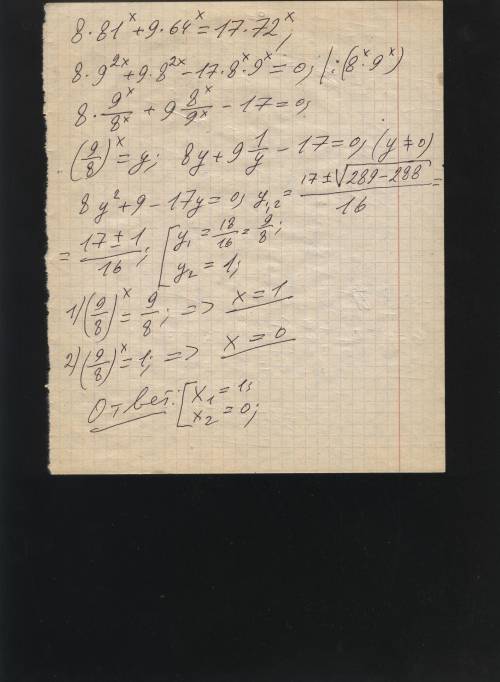 8·81^x + 9·64^x = 17·72^x;
8·9^2x + 9·8^2x − 17·8^x·9^x = 0; |:(8^x·9^x)
8·9^x/8^x + 9 8^x/9^x − 17 = 0;
(9/8)^x = y; 8y + 9 1/y − 17 = 0; (y ≠ 0)
8y² + 9 − 17y = 0; y₁,₂ = (17 ± √(289 − 288))/16 =
= (17 ± 1)/16; [y₁ = 18/16 = 9/8;
y₂ = 1;
1) (9/8)^x = 9/8; => x = 1
2) (9/8)^x = 1; => x = 0
Ответ: [x₁ = 1;
x₂ = 0;